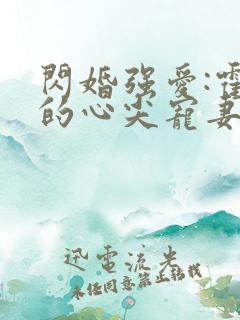 閃婚強愛:霍
的心尖寵妻
迅電流光
未经同意禁止转载